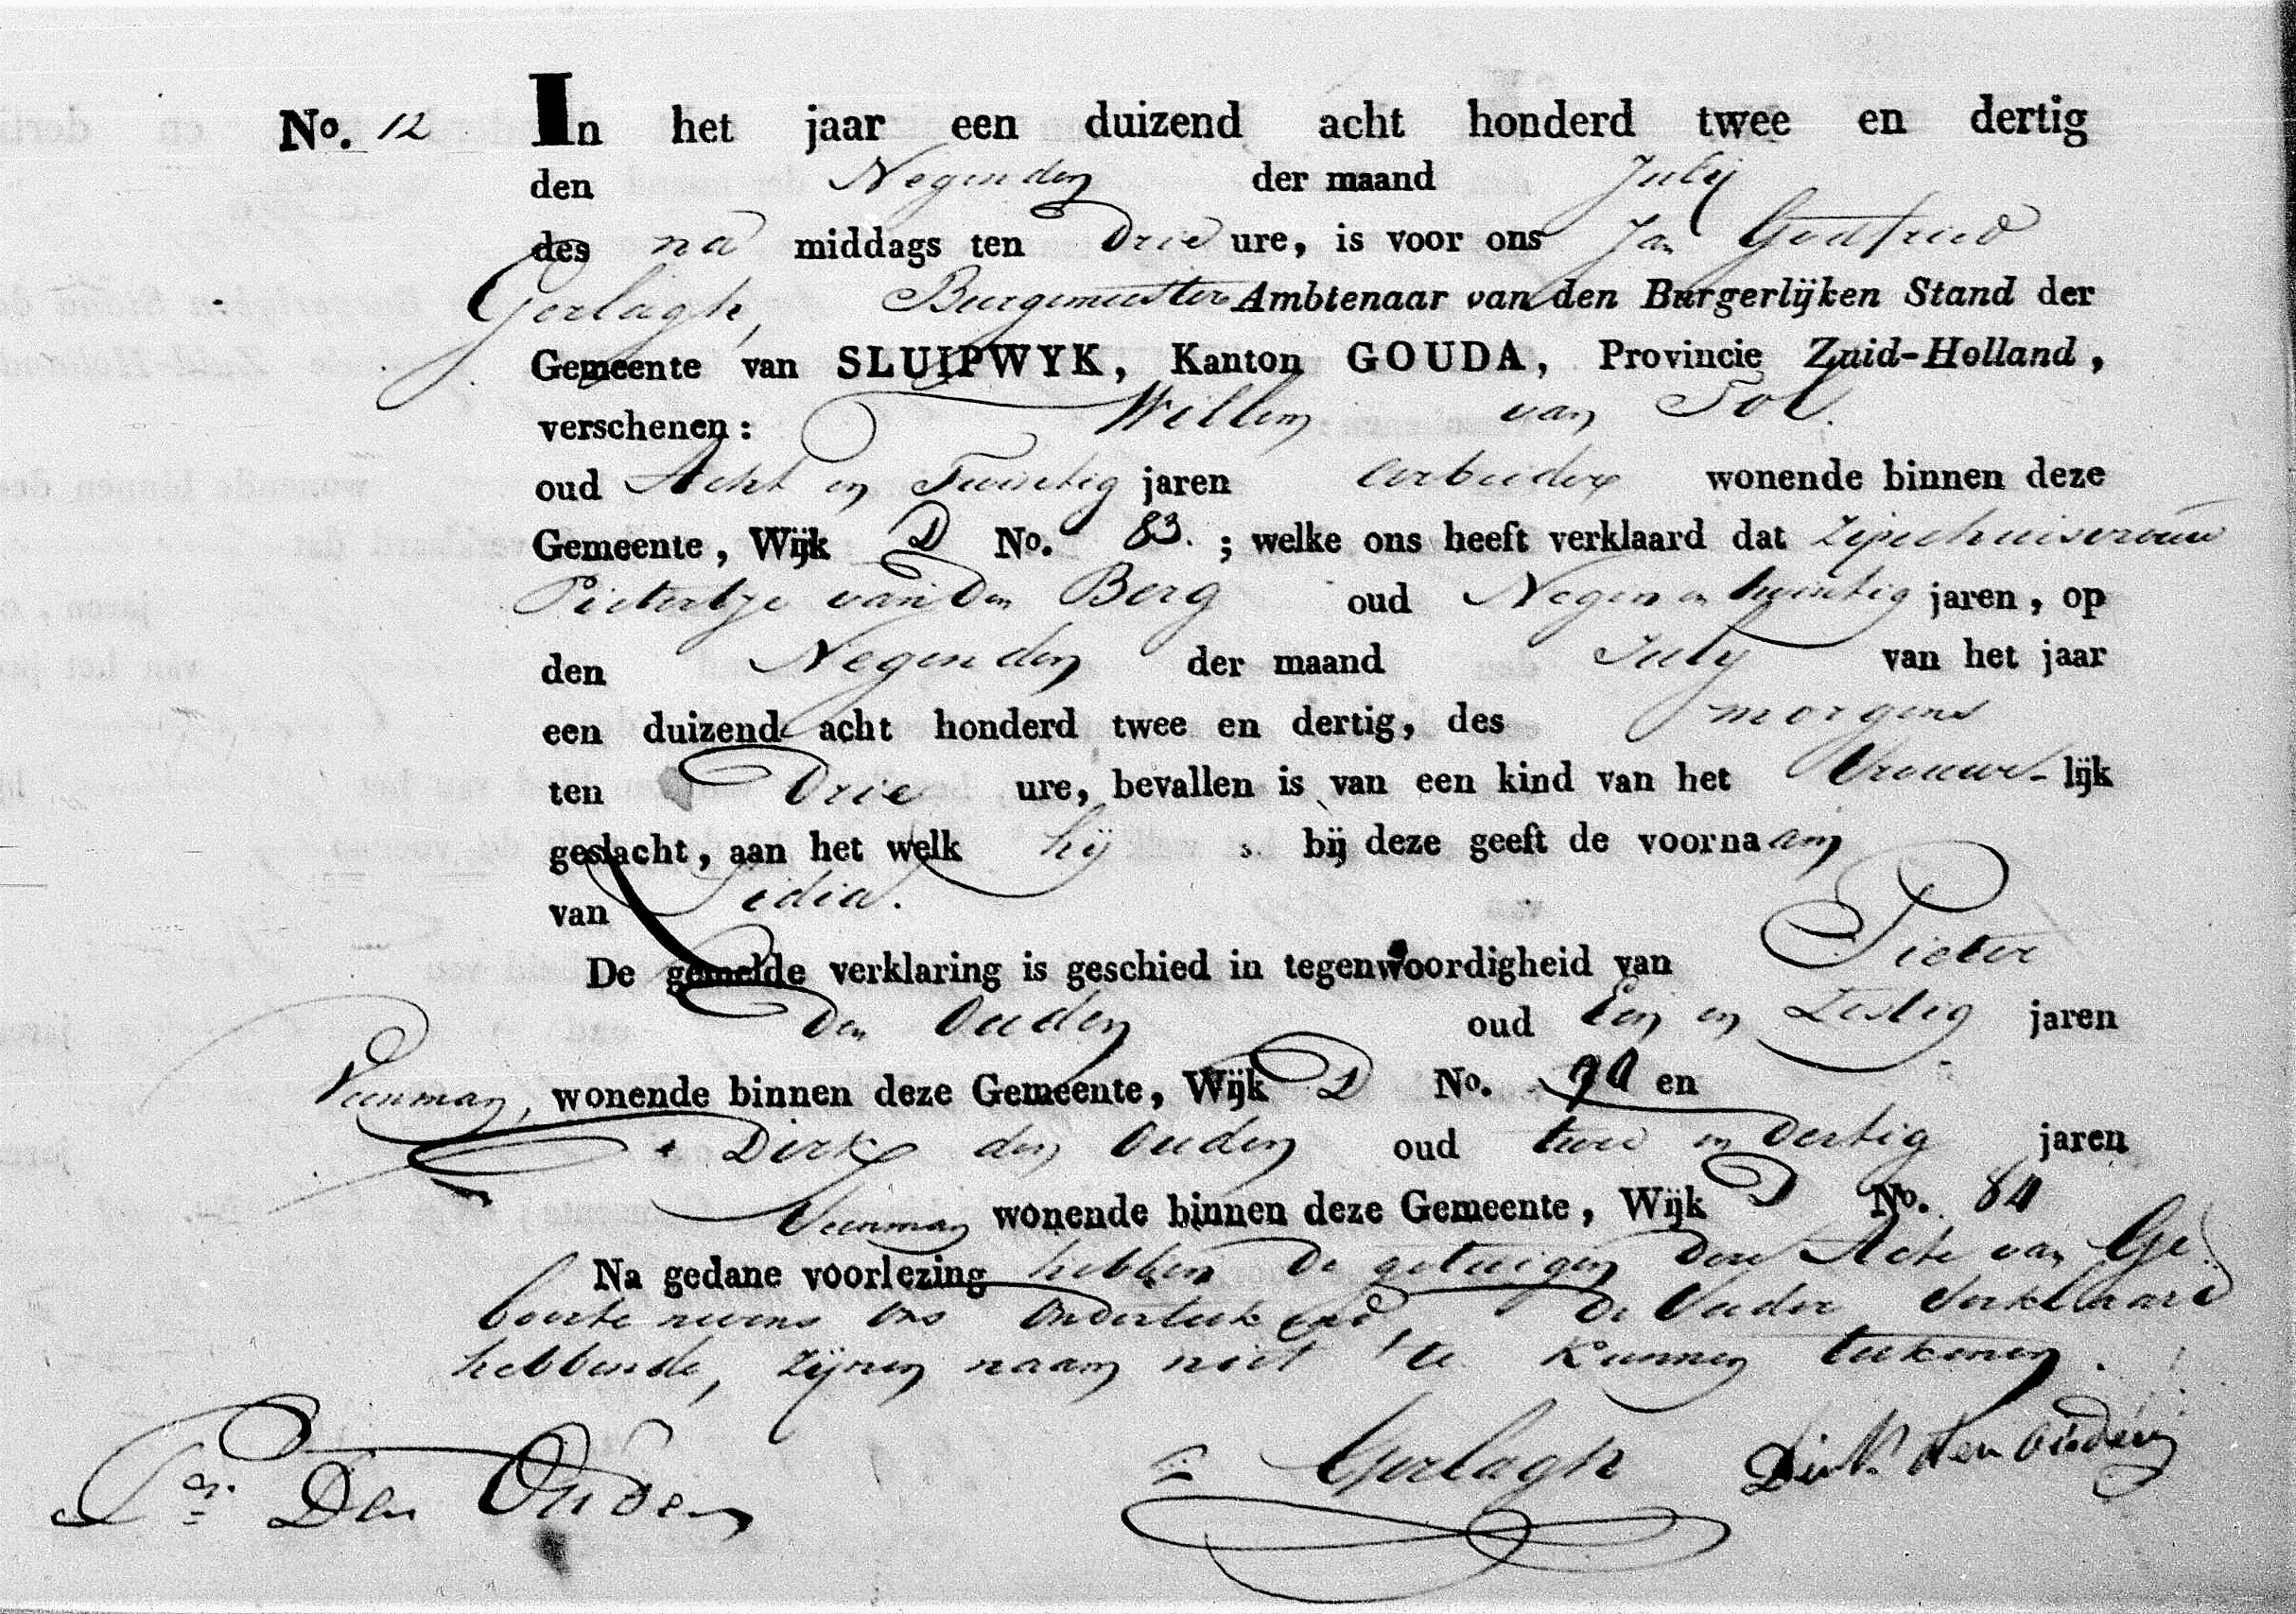 No. 12 In het jaar een duizend acht honderd twee en dertig
den Negenden der maand Julij
des na middags ten Drie ure, is voor ons Jan Godfried
Gerlagh, Burgemeester Ambtenaar van den Burgerlijken Stand der
Gemeente van SLUIPWYK, Kanton GOUDA, Provincie Zuid-Holland,
verschenen: Willem van Tol.
oud Acht en Twintig jaren arbeider wonende binnen deze
Gemeente, Wijk D No. 83. ; welke ons heeft verklaard dat zijne huisvrouw
Pietertje van Den Berg oud Negen en twintig jaren, op
den Negenden der maand July van het jaar
een duizend acht honderd twee en dertig, des morgens
ten Drie ure, bevallen is van een kind van het Vrouwe-lijk
geslacht, aan het welk hij bij deze geeft de voornaam
van Lidia.
De gemelde verklaring is geschied in tegenwoordigheid van Pieter
Den Ouden oud Een en Zestig jaren
Veenman, wonende binnen deze Gemeente, Wijk D No. en
Dirk den Ouden oud twee en Dertig jaren
Veenman wonende binnen deze Gemeente, Wijk D No. 84
Na gedane voorlezing hebben De getuigen Deze Acte van Ge
boorte nevens ons Onderteekend, De Vader Verklaard
hebbende, zijnen naam niet te Kunnen teekenen.
Pr. Den Ouden Gerlagh Dirk den ouden